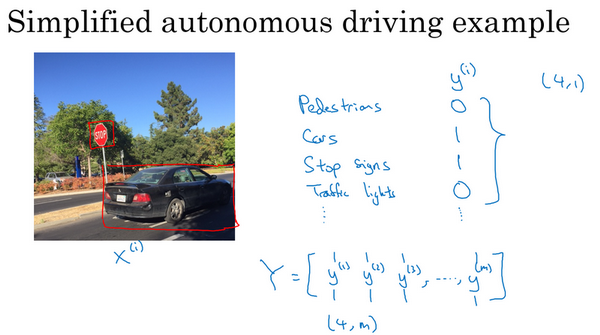 Simplified autonomous driving example
STOP
x^(i)
y^(i) (4,1)
Pedestrians 0
Cars 1
Stop signs 1
Traffic lights 0
⋮ ⋮
Y = [ y^(1) y^(2) y^(3), ----, y^(m) ]
(4, m)